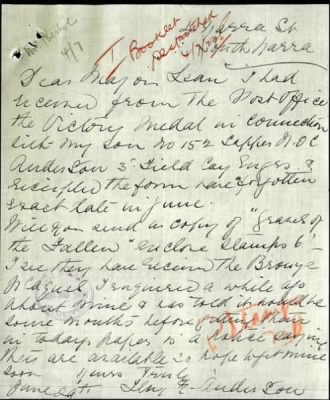 Narra St
North Narra
1 Booklet
despatched
4/7
Dear Major Lean I had
received from The Post Office
the Victory Medal in connection
with my Son No 152 Sapper R.O.C
Anderson 5" Field Coy Engrs. I
receipted the form have forgotten
exact date in June.
Will you send a copy of "Graves of
the Fallen" enclose Stamps 6"
I see they have received the Bronze
Plaques I enquired a while ago
about mine & was told it would be
some months before
in todays paper is a notice saying
there are available so hope to get mine
soon Yours Truly
June 29th Anderson